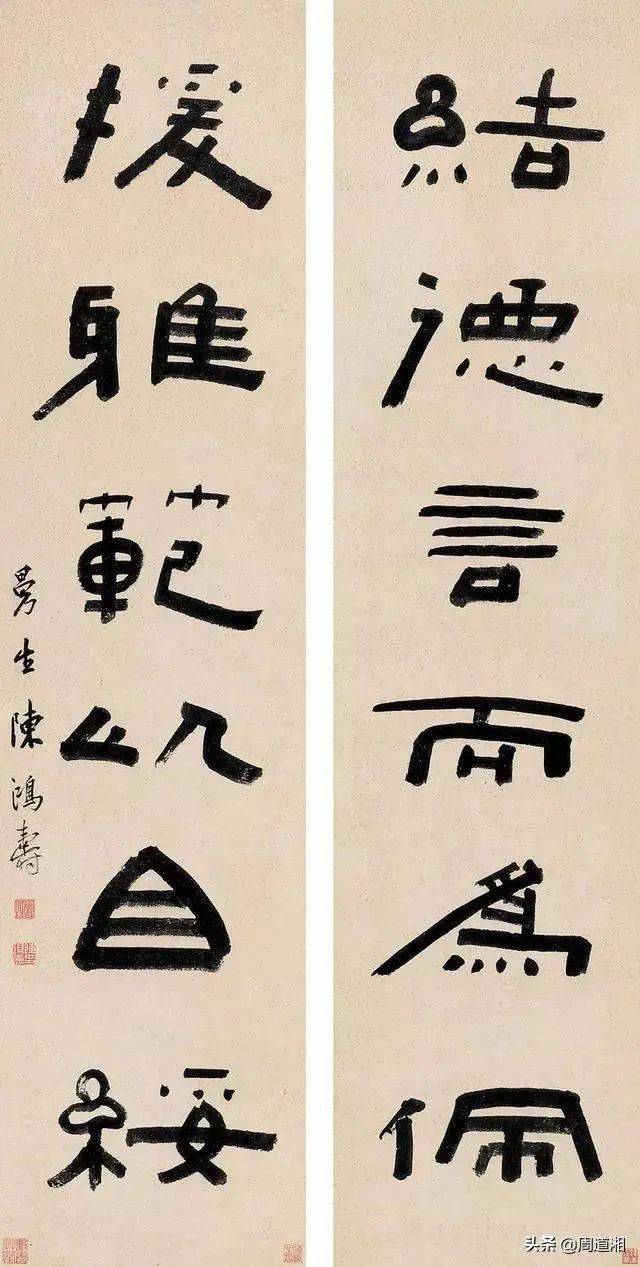 結德言而爲佩
援雅範以自綏
曼生陳鴻壽
头条 @周道湘